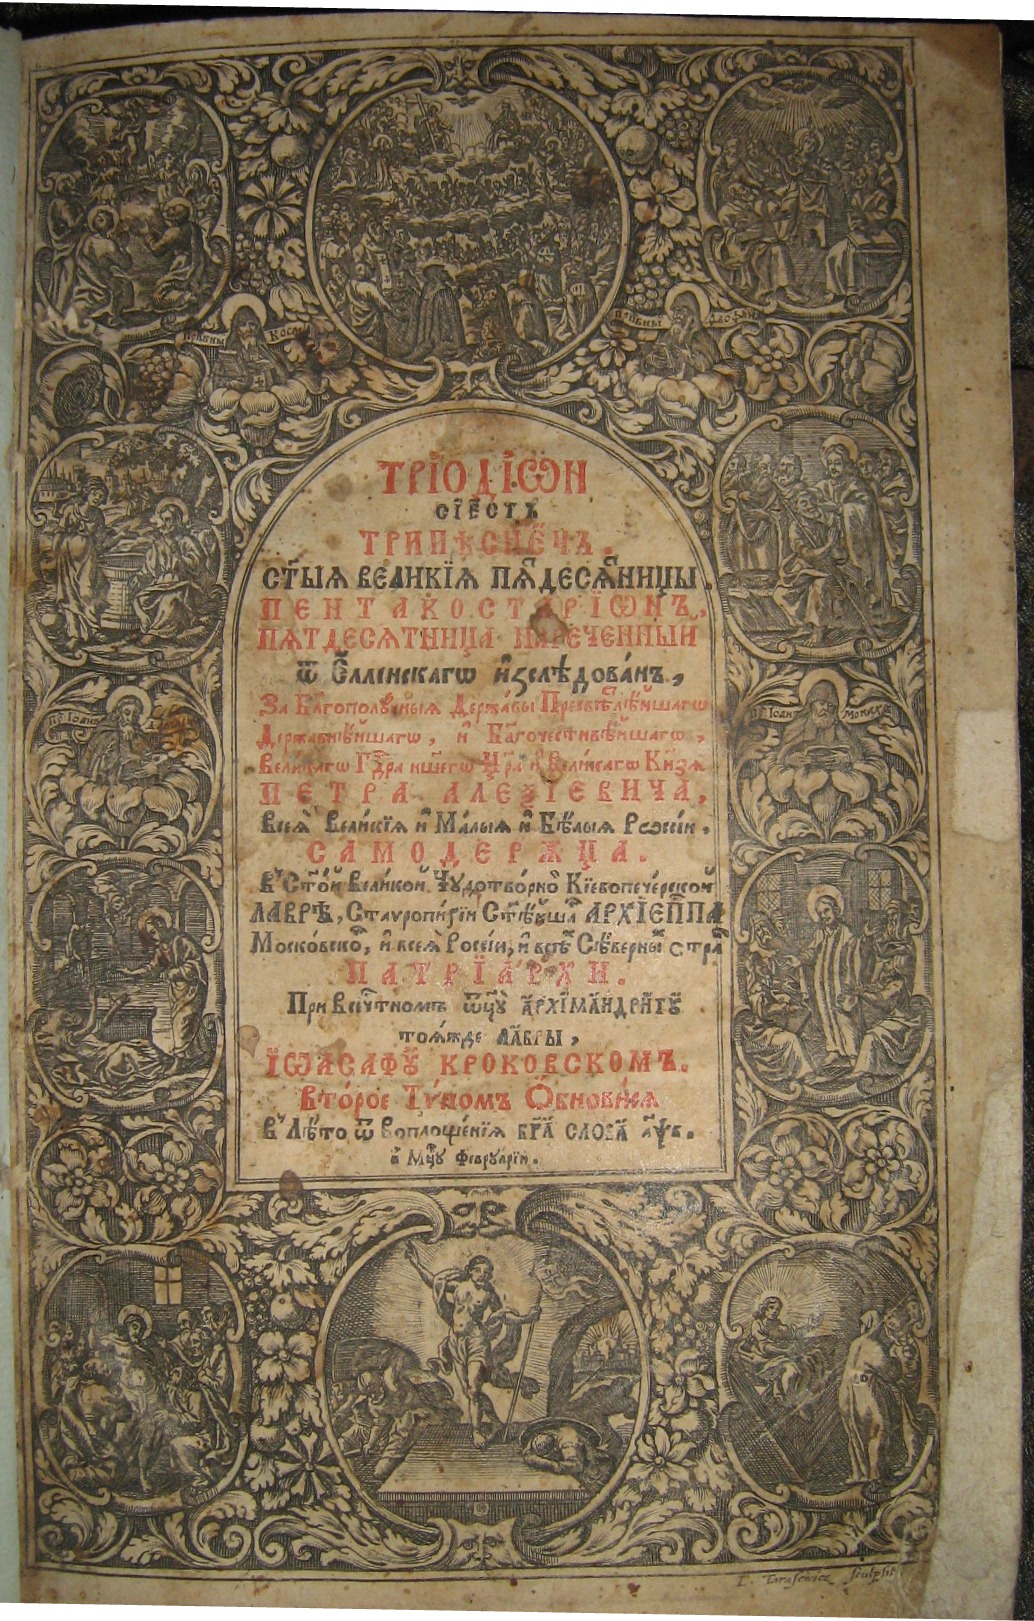 прпⷣбны Косма
прпⷣбны Ѳеофан
ТРІѠДІѠН
СІЕСТЬ
ТРИПѢСНЕЦЪ.
СТ҃ЫЯ ВЕЛИКІѦ ПѦ҃ДЕСѦ҃НИЦЫ
ПЕНТАКОСТАРІѠНЪ,
ПѦТДЕСѦТНИЦА НАРЕЧЕННЫЙ
ѿ Еллинскагѡ изслѣдованъ,
За Благополꙋчныѧ Державы Пресвѣтлѣйшагѡ
Державнѣйшагѡ, и Благочестивѣйшагѡ,
Великагѡ Гдⷭ҇рѧ нш҃егѡ Цр҃ѧ и Великагѡ Кнѧзѧ
ПЕТРА АЛЕѮІЕВИЧА,
Всеѧ Великіѧ и Малыѧ и Бѣлыѧ Рѡссіи,
САМОДЕРЖЦА.
В Ст҃ой Великой Чꙋдотворной Кіевопечерской
ЛАВРѢ, Ставропигіи Ст҃ѣйша АРХІЕПⷭ҇ПА
Московско, и всеѧ Россіи, и всѣ Сѣверны стра
ПАТРІАРХИ.
При Всечⷭ҇тномъ ѿц҃ꙋ архімандритꙋ
тоѧжде Лаѵры,
ІѠАСАФꙊ КРОКОВСКОМЪ.
Второе Тѵпомъ Обновисѧ
В Лѣто ѿ Воплощеніѧ БГ҃А СЛОВА ҂аѱв.
в Мцⷭ҇ꙋ Феврꙋаріи.
пр Іоан Дамаски
пр Іоан Монах
L. Tarasewicz sculpsit